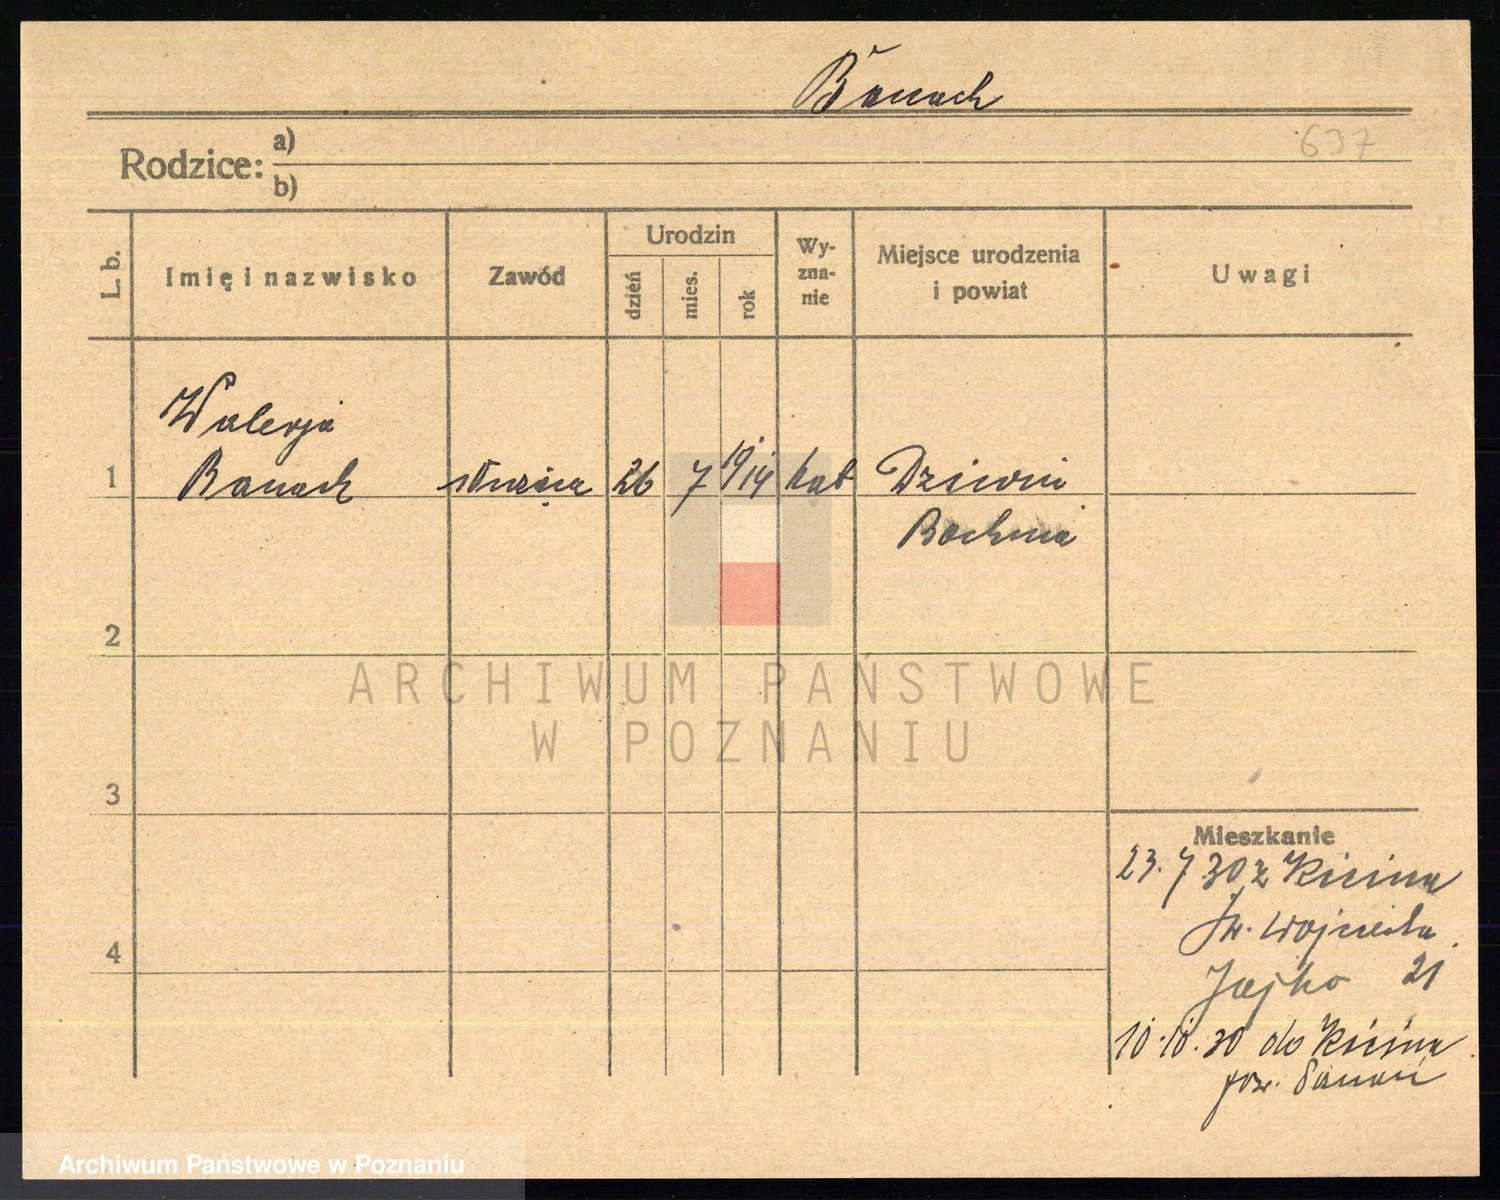 Banach
637
Rodzice: a)
b)
L. b.
Imię i nazwisko
Zawód
Urodzin
dzień
mies.
rok
Wy-
zna-
nie
Miejsce urodzenia
i powiat
Uwagi
Walerja
1 Banach służąca 26 7 19/14 kat
Bochnia
2
ARCHIWUM PAŃSTWOWE
W POZNANIU
3
Mieszkanie
23. 7 30 z Kicina
św. Wojciecha
4
Jajko 21
10.10.30 do Kicina
pow. Poznań
Archiwum Państwowe w Poznaniu